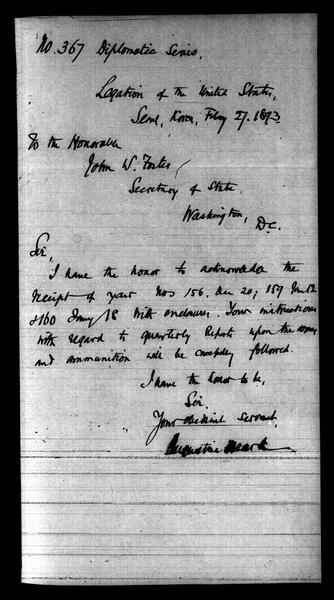 No. 367 Diplomatic Series,
Legation of the United States,
Seoul, Korea, Feby 27. 1893
To the Honorable
John W. Foster,
Secretary of State
Washington,
D.C.
Sir,
I have the honor to acknowledge the
receipt of your Nos 156. Dec 20; 159
&160 Jany 18 with enclosure. Your instructions
with regard to quarterly Reports upon the arms
and ammunition will be carefully followed.
I have the honor to be,
Sir,
Your obedient Servant,
Augustine Heard